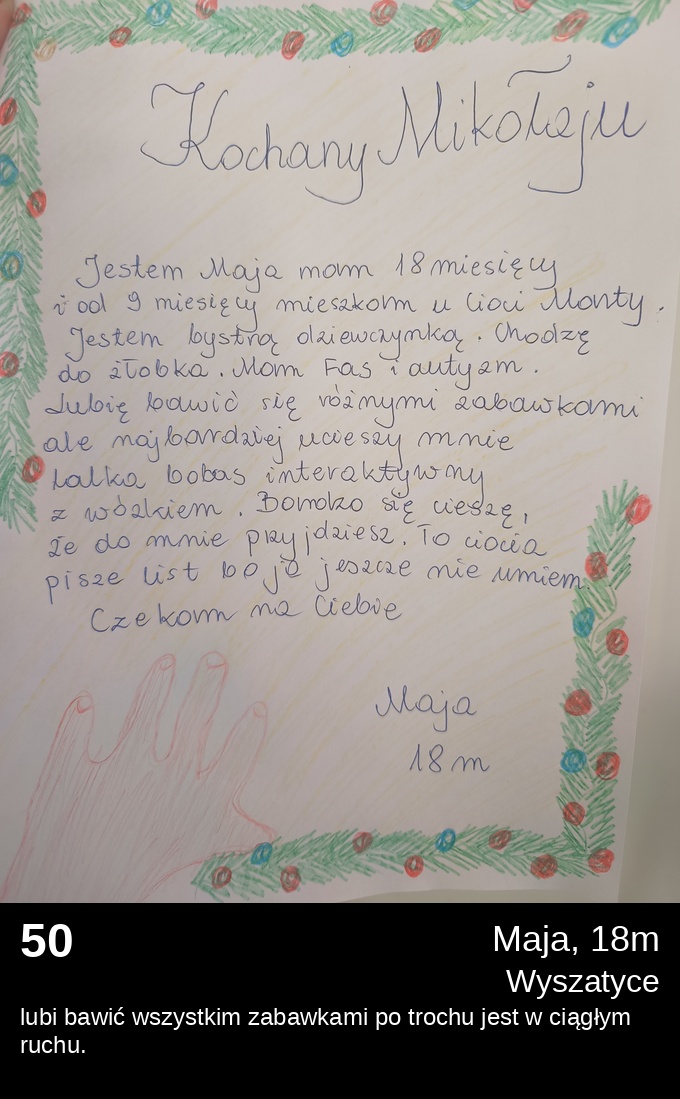 Kochany Mikołaju
Jestem Maja mam 18 miesięcy
i od 9 miesięcy mieszkam u Cioci Monty.
Jestem bystrą dziewczynką. Chodzę
do żłobka. Mam Fas i autyzm.
Lubię bawić się różnymi zabawkami
ale najbardziej ucieszy mnie
lalka bobas interaktywny
z wózkiem. Bardzo się cieszę,
że do mnie przyjdziesz. To ciocia
pisze list bo ja jeszcze nie umiem
Czekam na Ciebie
Maja
18 m
50
Maja, 18m
Wyszatyce
lubi bawić wszystkim zabawkami po trochu jest w ciągłym
ruchu.